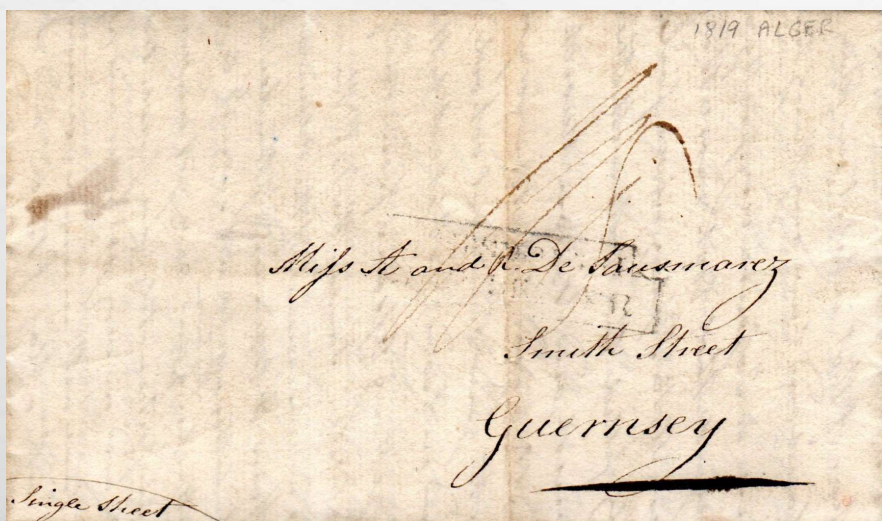 1819 ALGER
Miss A and R. De Sausmarez
Smith Street
Guernsey
Single Sheet